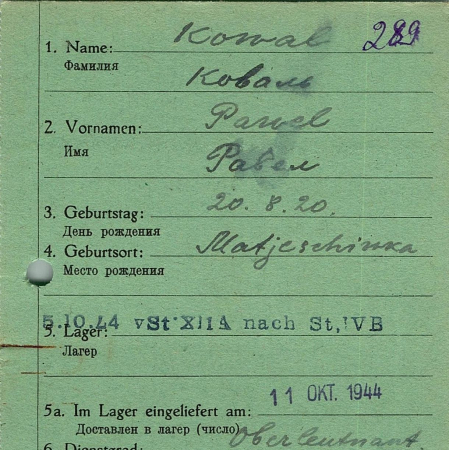 289
1. Name: Kowal
Фамилия
Коваль
2. Vornamen: Pawel
Имя
Равел
3. Geburtstag: 20. 8. 20.
День рождения
4. Geburtsort: Matjeschinka
Место рождения
5.10.44 vSt XIIA nach St,IVB
5. Lager:
Лагер
11 OKT. 1944
5a. Im Lager eingeliefert am:
Доставлен в лагер (число)
Oberleutnant
6. Dienstgrad: